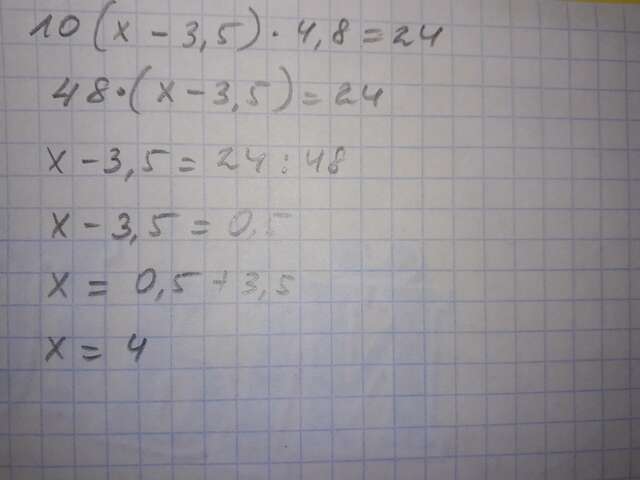 10(x - 3,5) · 4,8 = 24
48 · (x - 3,5) = 24
x - 3,5 = 24 : 48
x - 3,5 = 0,5
x = 0,5 + 3,5
x = 4